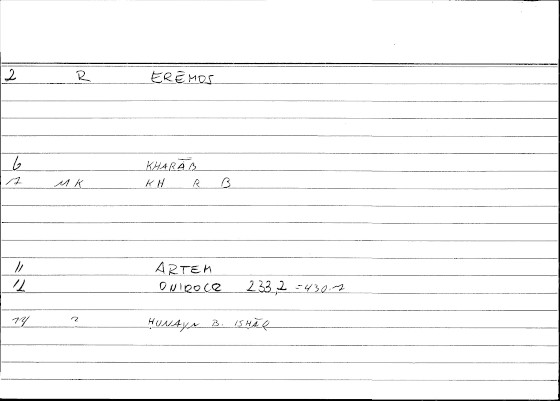 2 R ERĒMOS
6 KHARĀB
7 MK KH R B
11 ARTEM
12 ONIROCR 233,2 =430.7
14 ? ḤUNAYN B. ISḤĀQ